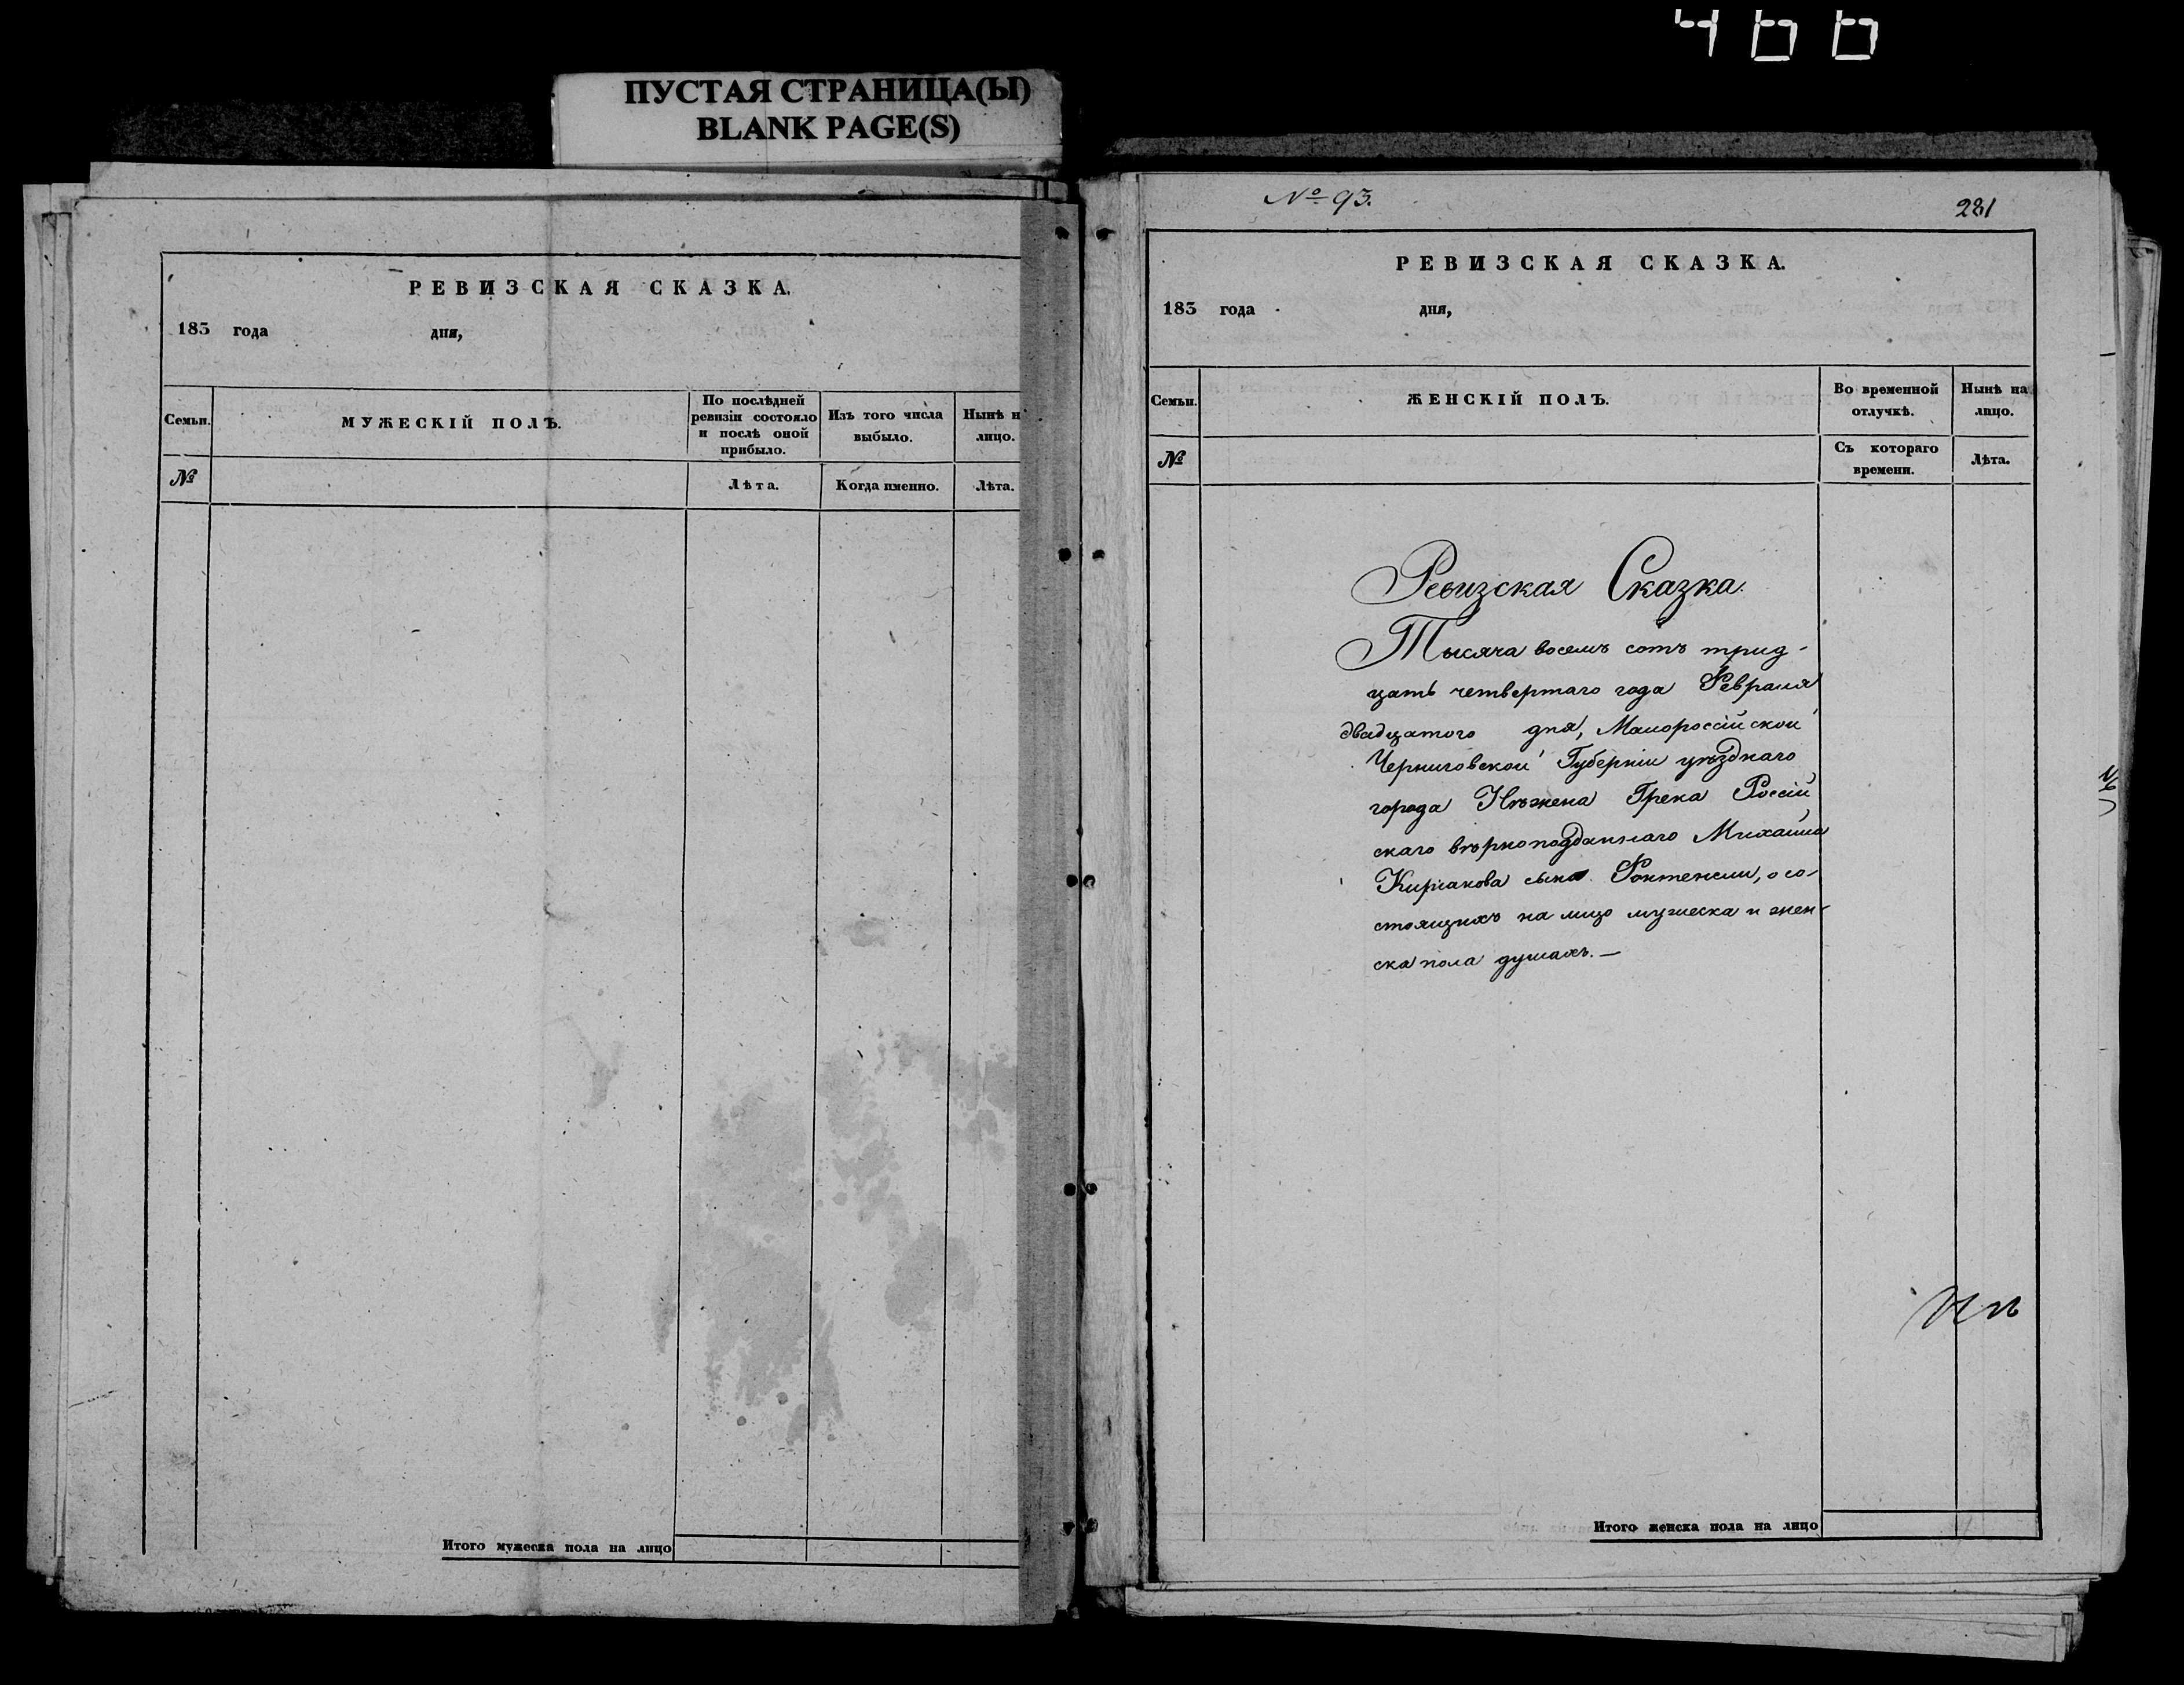 466
ПУСТАЯ СТРАНИЦА(Ы)
BLANK PAGE(S)
РЕВИЗСКАЯ СКАЗКА.
183 года дня,
Семьи.
МУЖЕСКІЙ ПОЛЪ.
По послѣдней
ревизіи состояло
и послѣ оной
прибыло.
Изъ того числа
выбыло.
Нынѣ н
лицо.
№
Лѣта.
Когда именно.
Лѣта.
Итого мужеска пола на лицо
№ 93.
281
РЕВИЗСКАЯ СКАЗКА.
183 года дня,
Семьи.
ЖЕНСКІЙ ПОЛЪ.
Во временной
отлучкѣ.
Нынѣ на
лицо.
№
Съ котораго
времени.
Лѣта.
Ревизская Сказка.
Тысяча восемъ сотъ трид-
цать четвертаго года Февраля
двадцатого дня, Малороссійской
Черниговской Губерніи уѣзднаго
города Нѣжена Грека Россій
скаго вѣрноподданнаго Михайла
Киріакова сына Фонтенели, о со-
стоящихъ на лицо мужеска и жен-
ска пола душахъ.—
Итого женска пола на лицо